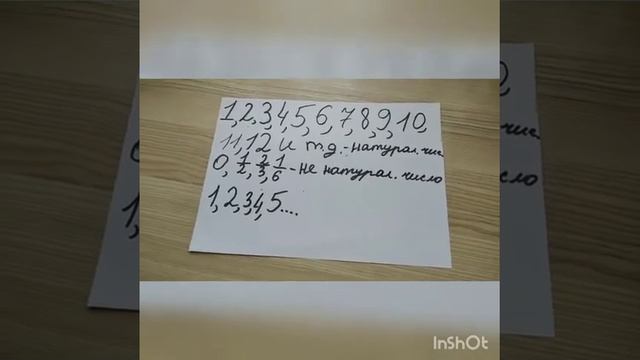 1, 2, 3, 4, 5, 6, 7, 8, 9, 10,
11, 12 и т.д. - натурал. чис
0, 1/2, 2/3, 1/6 - не натурал. число
1, 2, 3, 4, 5....
InShOt